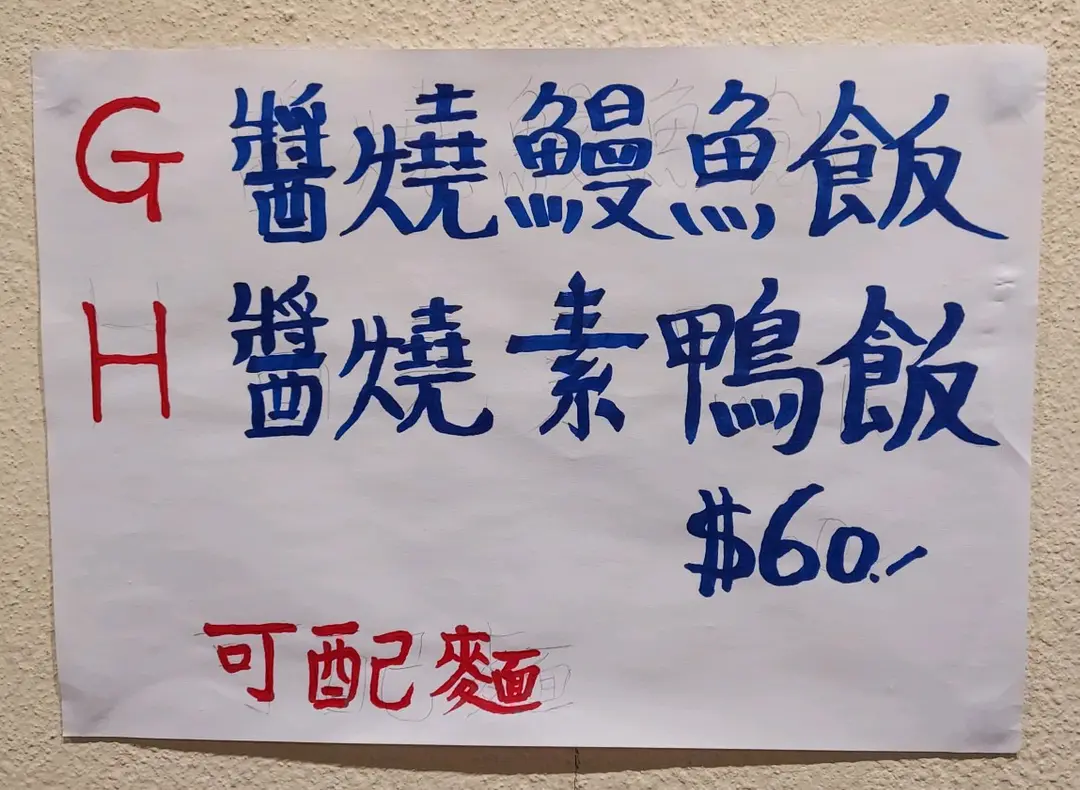 G 醬燒鰻魚飯
H 醬燒素鴨飯
$60.-
可配麵